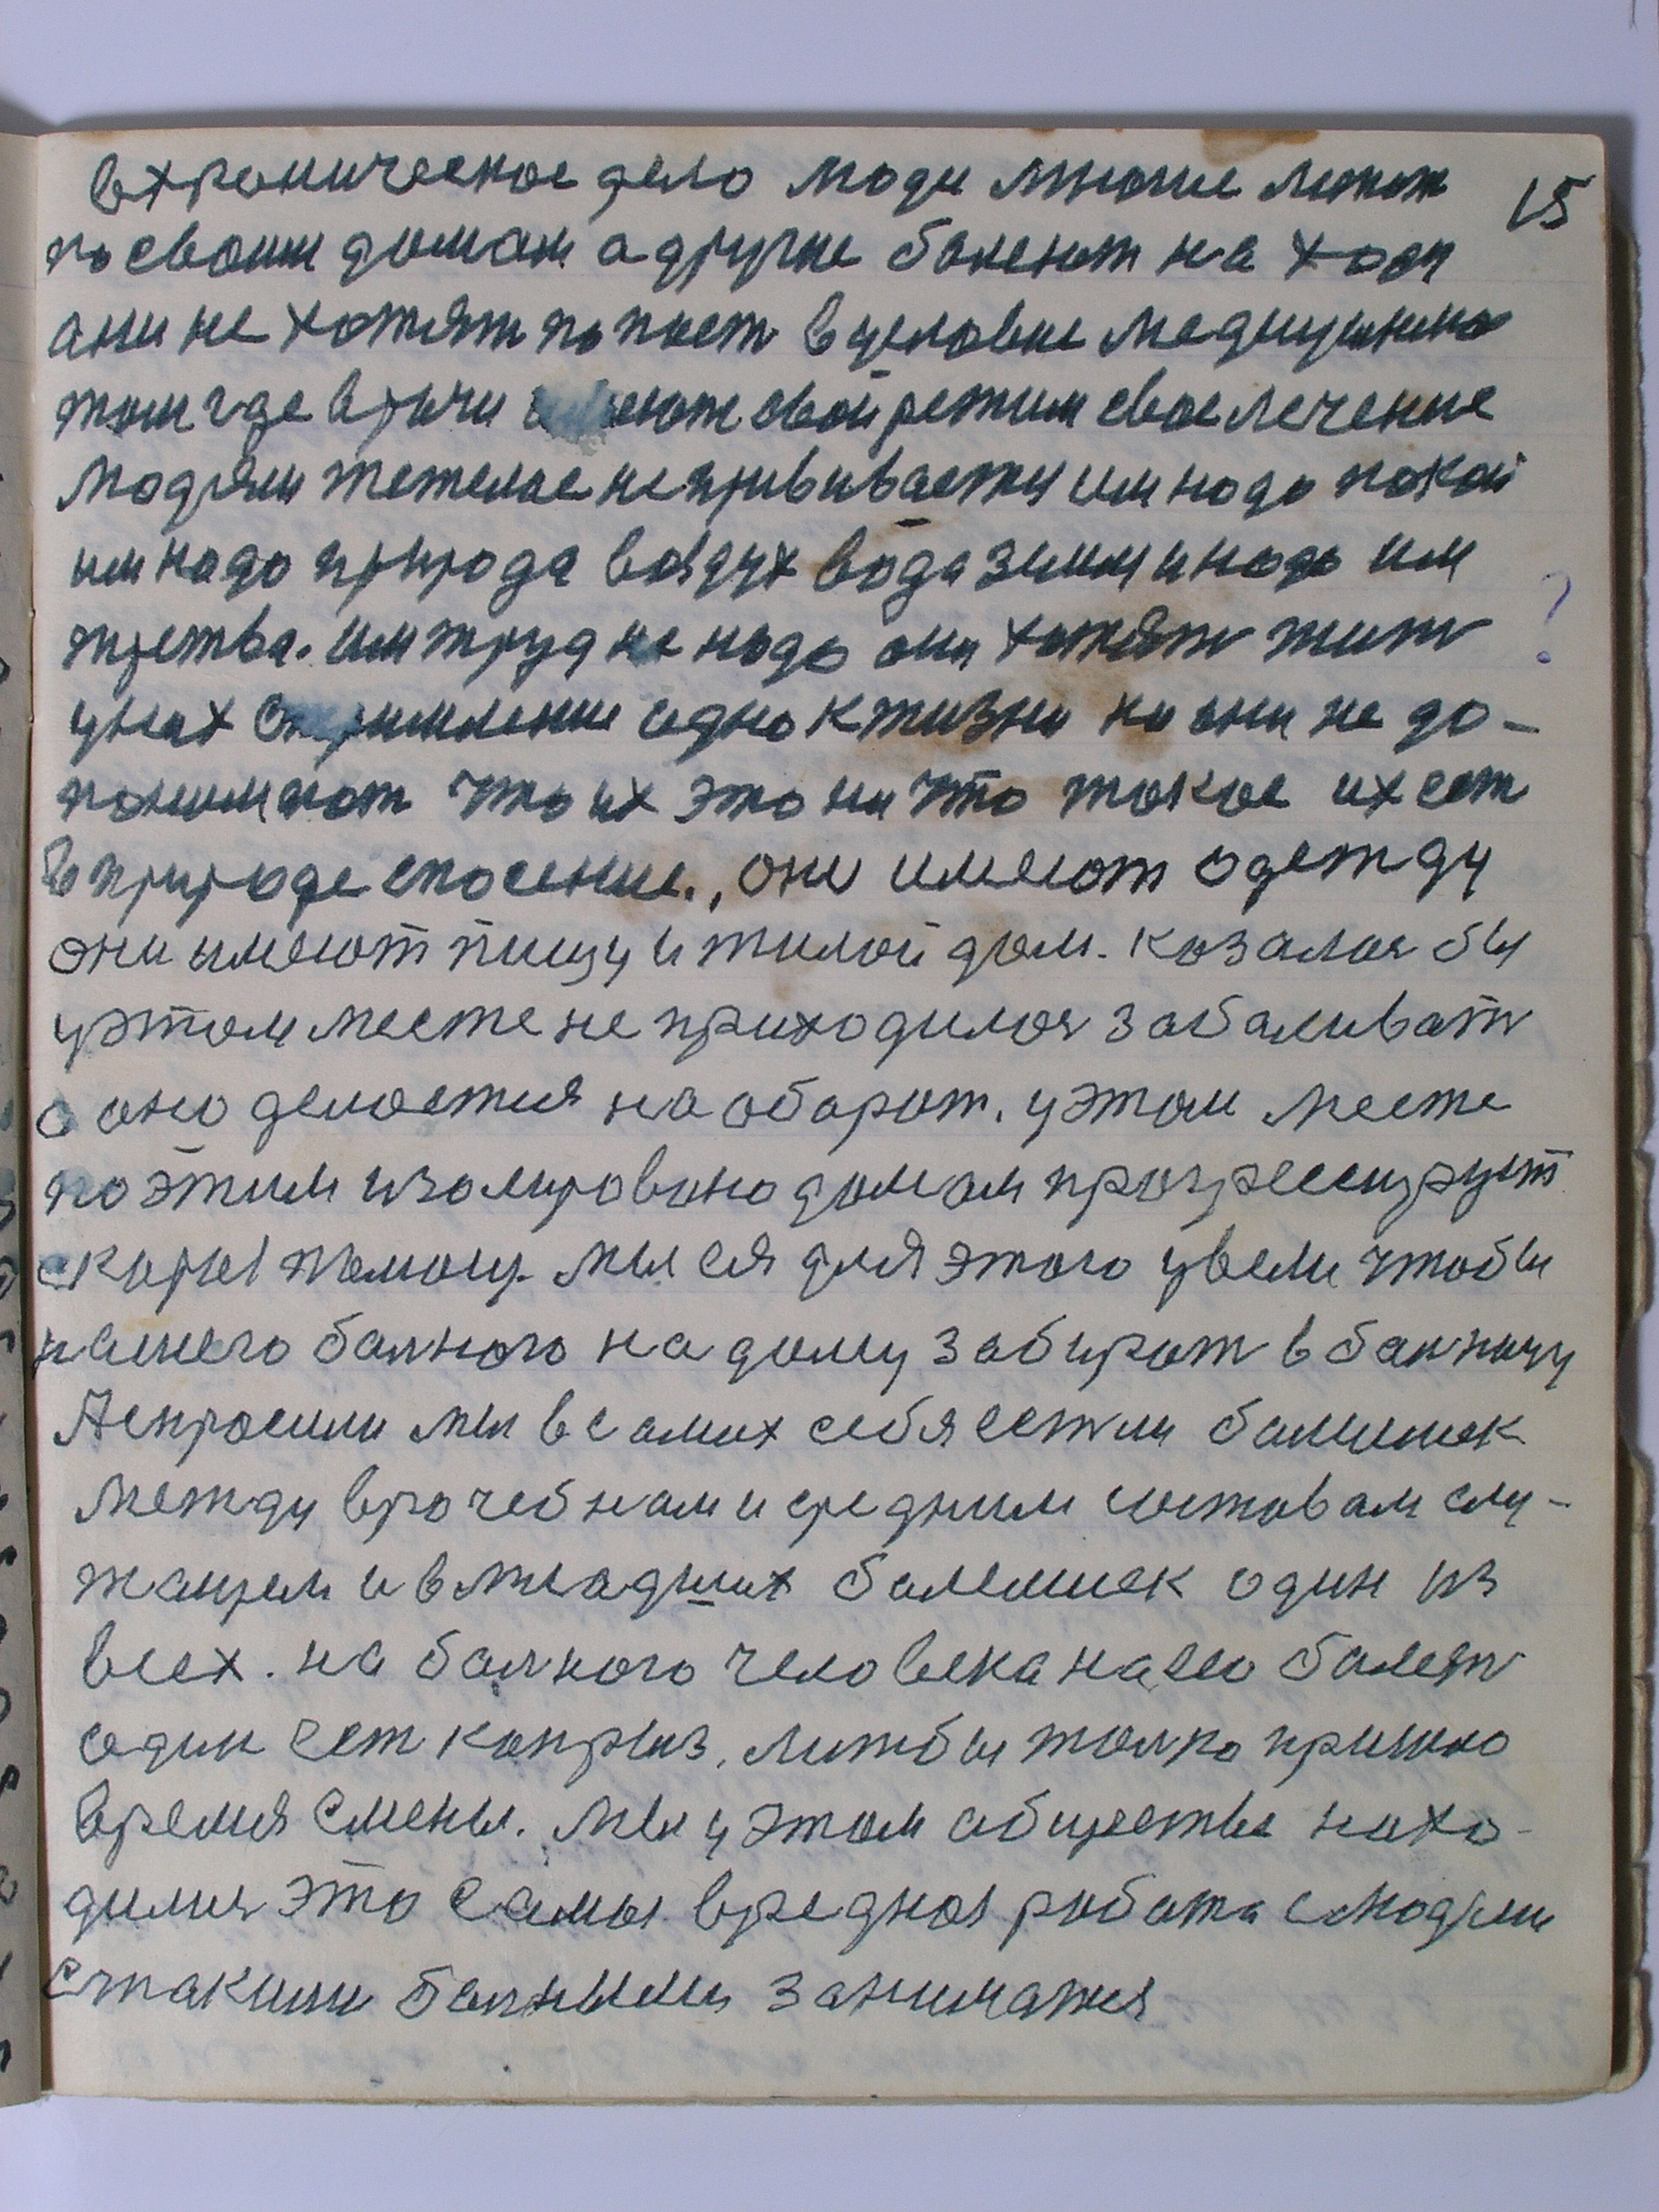 вхроническое дело люди многие лежат 15
по своим домам а другие болеют на ходу
они не хотят попаст в условие медицинино
там где врачи имеют свой режим свое лечение
людям тежелое не прививается им надо покой
им надо природа воздух вода земля и надо им
средства. им труд не надо они хотят жит
у них стримление одно к жизни но они не до-
понимают что их это ни что такое их ест
в природе спосение., они имеют одежду
они имеют пищу и жилой дом. козалося бы
у этом месте не приходилося забаливат
а оно делоется на оборот. у этом месте
по этим изолировано домам прогрессирует
скорая помощ. мы ея для этого увели чтобы
нашего болного на дому забират в болницу
А спросили мы в самих себя ест ли болишек
между врочебном и средним составам слу-
жащем и в младших болешек один из
всех. на болного человека на его болезн
один ест каприз. лижбы толко пришло
время смены. мы у этом обществе нахо-
димся это самая вредная работа с людями
с такими болными заниматся